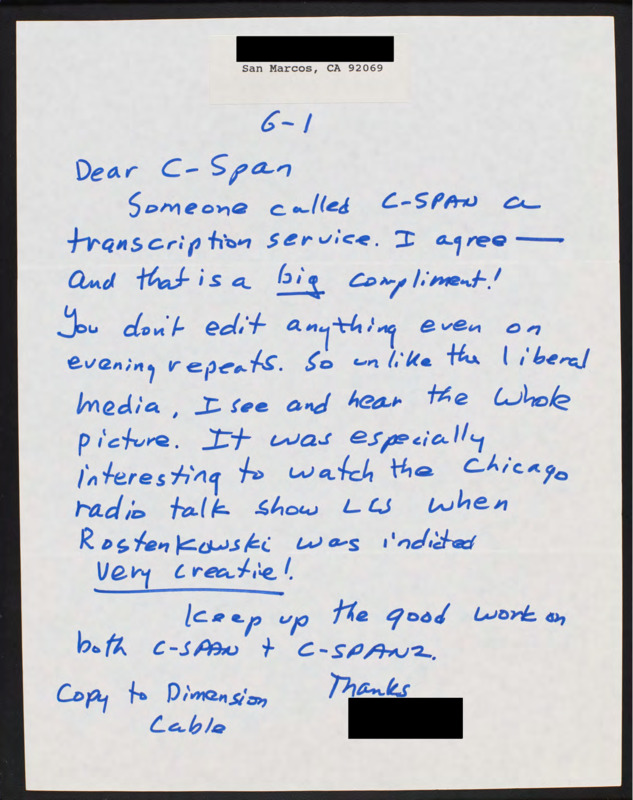 San Marcos, CA 92069
6-1
Dear C-Span
Someone called C-SPAN a
transcription service. I agree —
And that is a big compliment!
You don't edit anything even on
evening repeats. So unlike the liberal
media, I see and hear the whole
picture. It was especially
interesting to watch the Chicago
radio talk show LCS when
Rostenkowski was indicted
Very creatie!
Keep up the good work on
both C-SPAN + C-SPAN2.
Thanks
Copy to Dimension
Cable